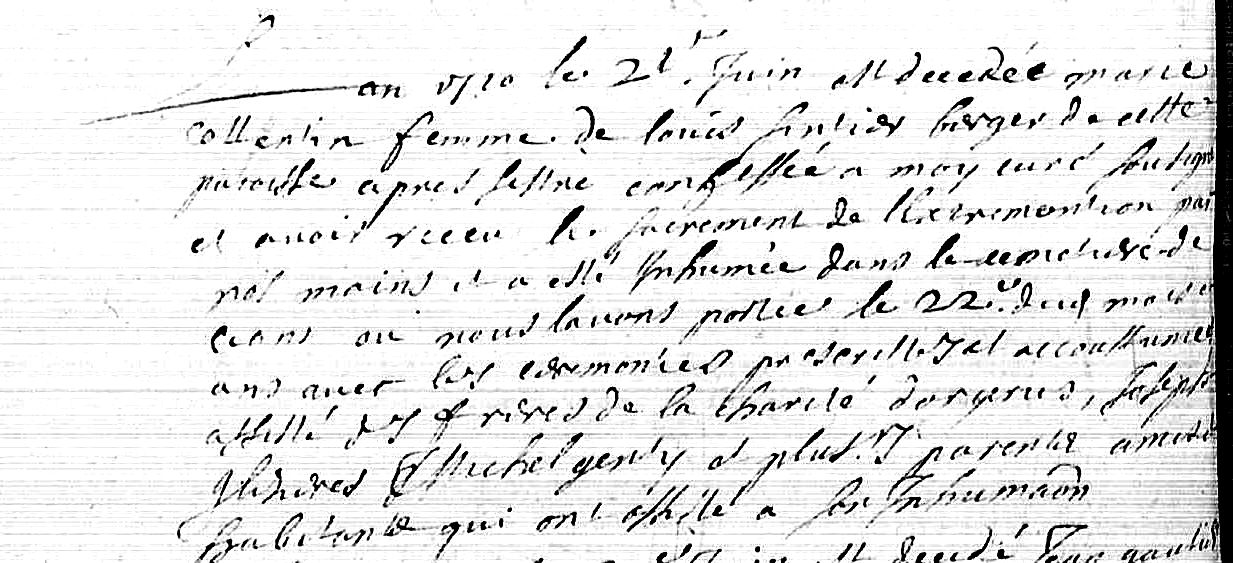 Lan 1710 le 21r Juin est decedée marie
collentin femme de louis sentier berger de cette
paroisse apres sestre confessée a moy curé soussigné
et avoir receu le sacrement de lextremontion par
nos mains et a esté Inhumée dans le cemetiere de
ceans ou nous lavons portée le 22e. des mois et
ans avec les ceremonies prescrittes et accoustumées
assisté des freres de la charité dorgerus, Joseph
Michel genty et plusrs parents amis et
habitants qui ont assisté a son Inhumaon
est decedé